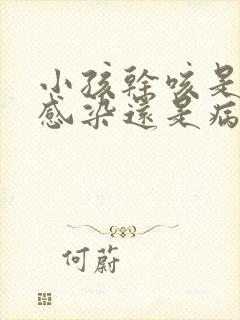 小孩幹咳是
感染還是病
何蔚